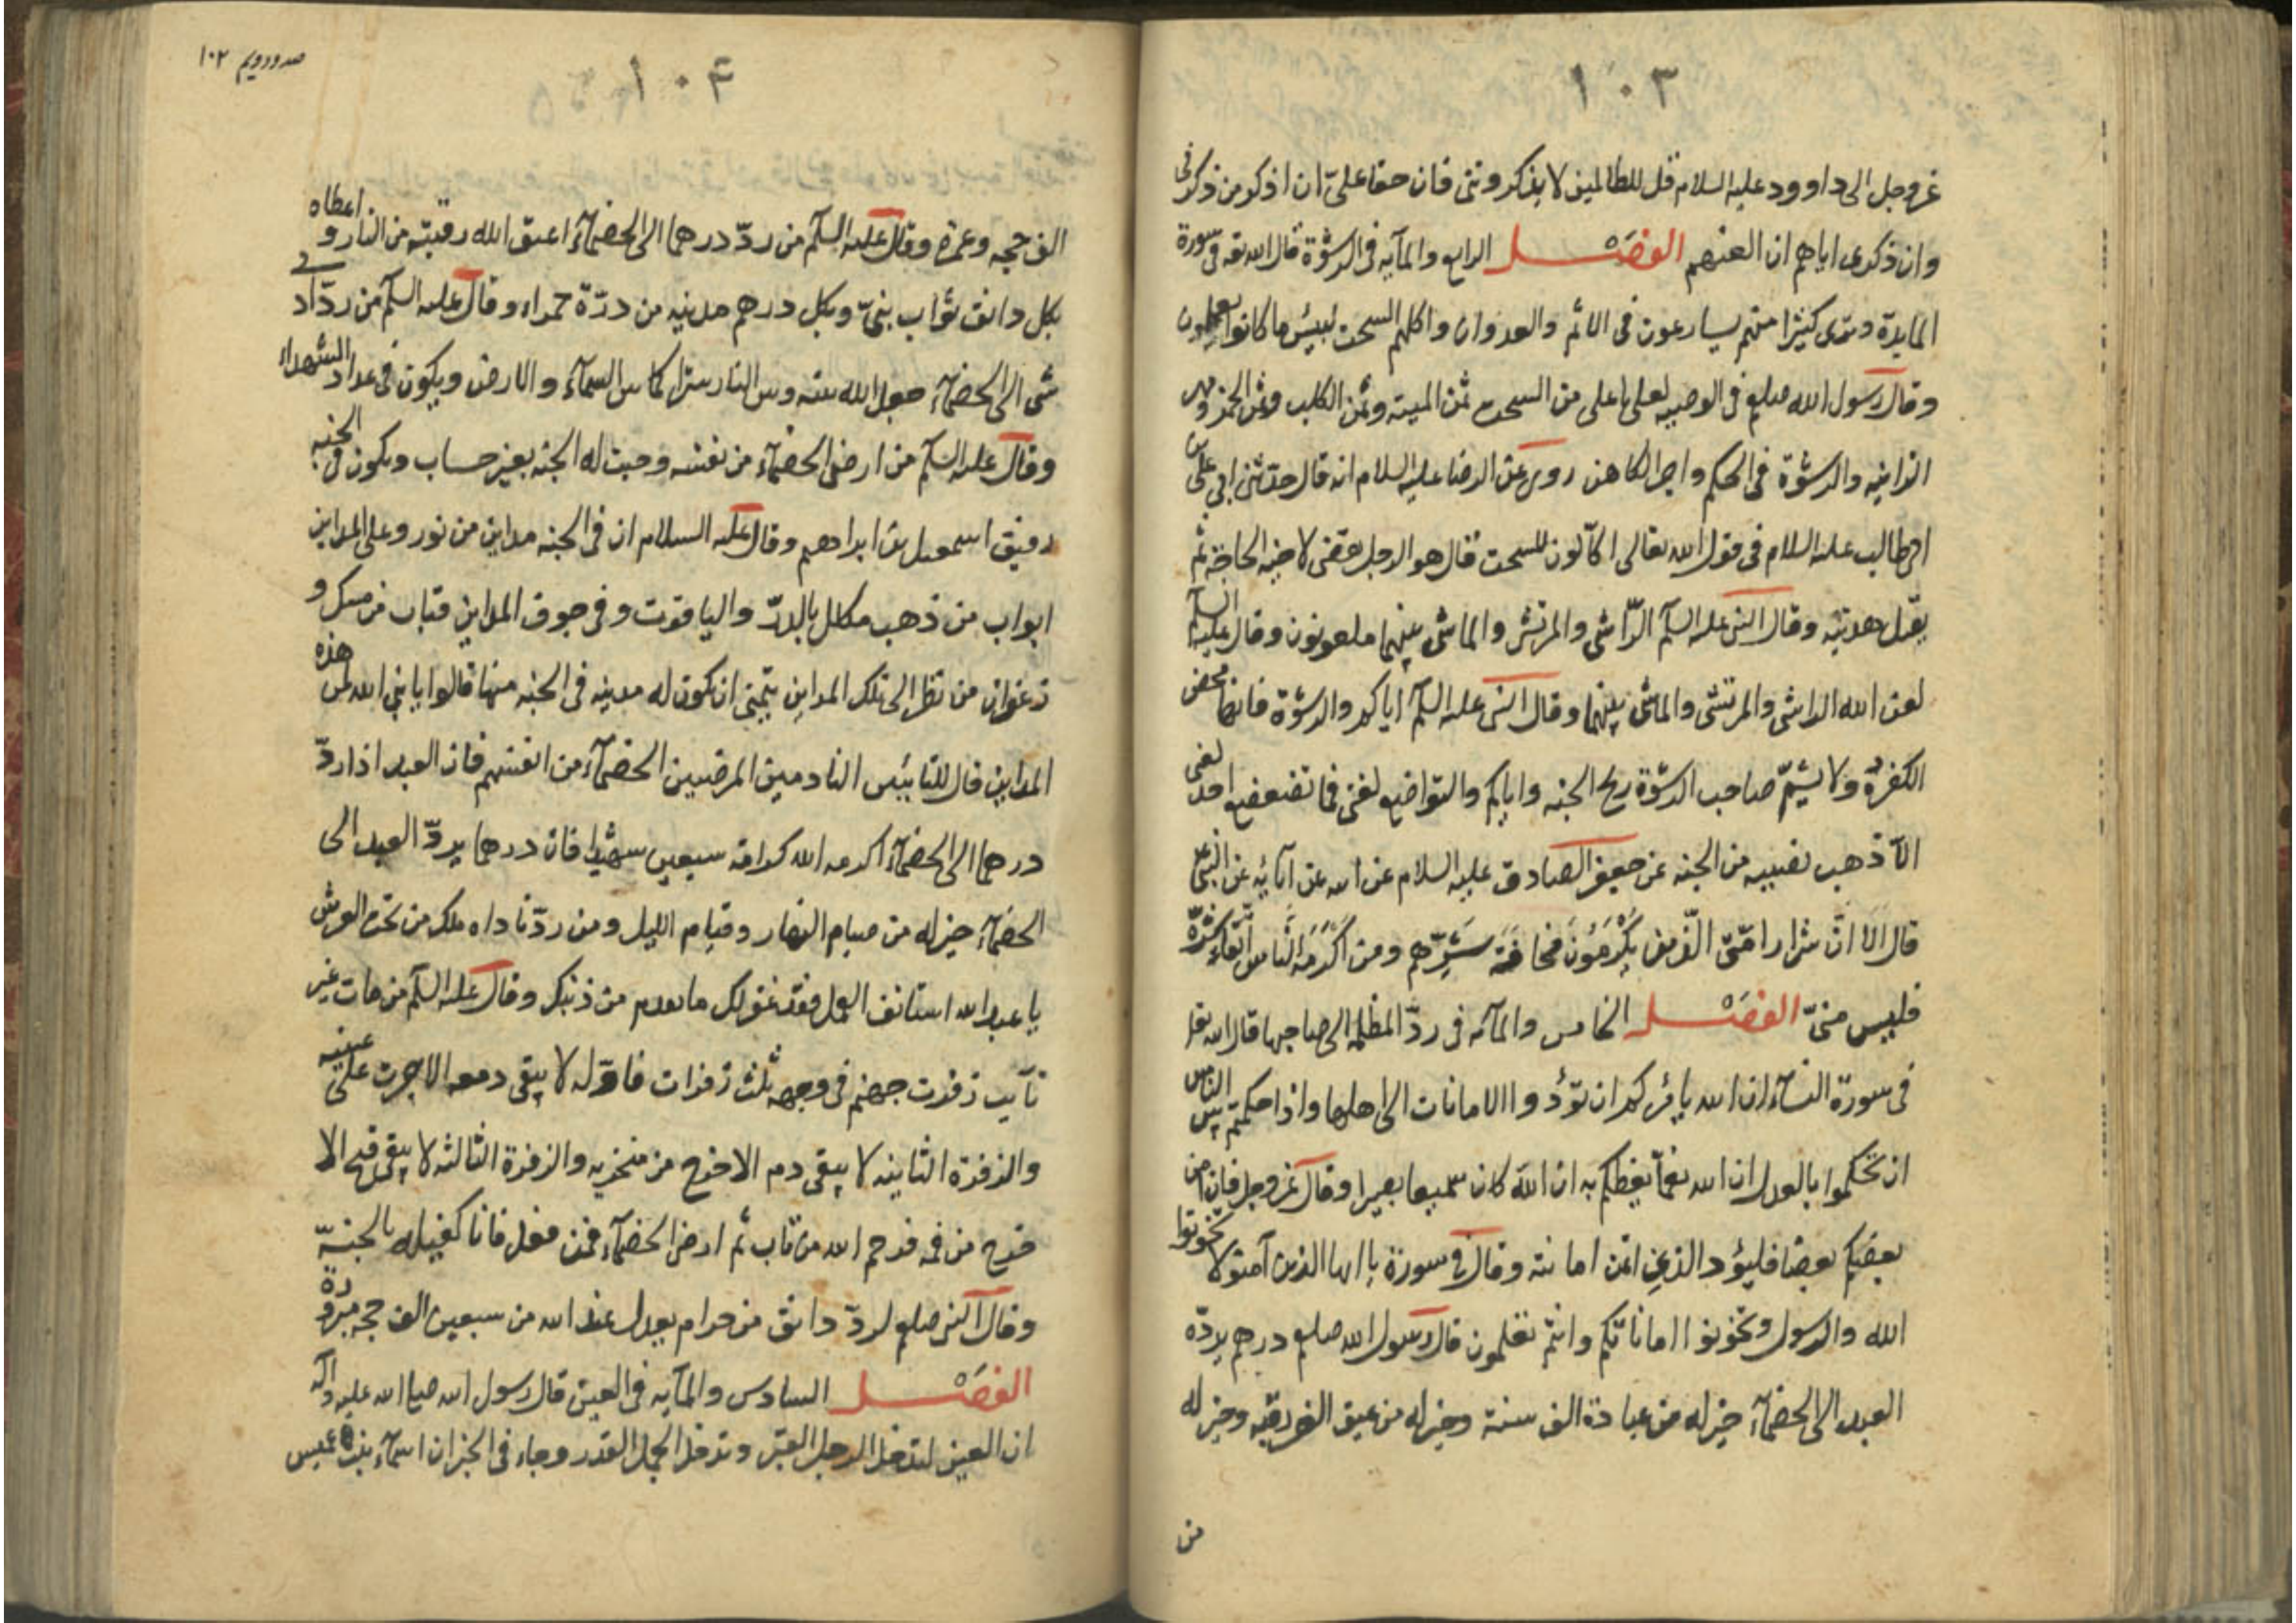 ١٠٣
عز وجل الى داوود عليه السلام قل للظالمين لا يذكرونني فان حقا علي ان اذكر من ذكرني
وان ذكرى اياهم ان العنهم الفصل الرابع والمآيه في الرشوة قال الله تعه في سورة
المايدة وترى كثيرا منهم يسارعون في الاثم والعدوان واكلهم السحت لبيس ما كانوا يعملون
وقال رسول الله صلعم في الوصيه لعلي يا علي من السحت ثمن الميته وثمن الكلب وثمن الخمر ومهر
الزانيه والرشوة في الحكم واجر الكاهن روى عن الرضا عليه السلام انه قال حدثني ابي علي بن
ابي طالب عليه السلام في قول الله تعالى اكالون للسحت قال هو الرجل يقضى لاخيه الحاجة ثم
يقبل هديته وقال النبى عليه السلم الراشي والمرتشى والماشى بينهما ملعونون وقال عليه السلم
لعن الله الراشى والمرتشى والماشى بينهما وقال النبى عليه السلم اياكم والرشوة فانها محض
الكفر ولا يشم صاحب الرشوة ريح الجنه واياكم والتواضع لغنى فما تضعضع احد لغنى
الا ذهب نصيبه من الجنه عن جعفر الصادق عليه السلام عن ابيه عن آبائه عن النبى ع
قال الا ان شرار امتى الذين يكرمون مخافة شرهم ومن اكرمه الناس اتقاء شره
فليس منى الفصل الخامس والمآيه في رد المظلمه الى صاحبها قال الله تعا
في سورة النسآء ان الله يامركم ان تؤدوا الامانات الى اهلها واذا حكمتم بين الناس
ان تحكموا بالعدل ان الله نعما يعظكم به ان الله كان سميعا بصيرا وقال عز وجل فان امن
بعضكم بعضا فليؤد الذي ائتمن امانته وقال في سورة يا ايها الذين آمنوا لا تخونوا
الله والرسول وتخونوا اماناتكم وانتم تعلمون قال رسول الله صلعم درهم يرده
العبد الى الخصمآء خير له من عبادة الف سنة وخير له من عتق الف رقبه وخير له
من
صد و دويم ١٠٢
١٠٤
الف حجه وعمرة وقال عليه السلم من رد درهما الى الخصمآء اعتق الله رقبته من النار و اعطاه
بكل دانق ثواب نبى وبكل درهم مدينه من درة حمراء وقال عليه السلم من رد اد
شى الى الخصمآء جعل الله بينه وبين النار سترا كما بين السمآء والارض ويكون في عداد الشهداء
وقال عليه السلم من ارضى الخصمآء من نفسه وجبت له الجنه بغير حساب ويكون في الجنه
رفيق اسمعيل بن ابراهيم وقال عليه السلام ان في الجنه مداين من نور وعلى المداين
ابواب من ذهب مكلل بالدر والياقوت وفي جوف المداين قباب من مسك و
زعفران من نظر الى تلك المداين يتمنى ان يكون له مدينه في الجنه منها قالوا يا نبي الله لمن هذه
المداين قال للتائبين النادمين المرضيين الخصمآء من انفسهم فان العبد اذا رد
درهما الى الخصمآء اكرمه الله كرامة سبعين شهيدا فان درهما يرد العبد الى
الخصمآء خير له من صيام النهار وقيام الليل ومن رد ناداه ملك من تحت العرش
يا عبد الله استانف العمل فقد غفر لك ما تقدم من ذنبك وقال عليه السلم من مات غير
تآيب زفرت جهنم في وجهه ثلث زفرات فاوله لا يبقى دمعه الا جرت على عينيه
والزفرة الثانيه لا يبقى دم الا خرج من منخريه والزفرة الثالثه لا يبقى قيح الا
خرج من فمه فرحم الله من تاب ثم ارضى الخصمآء فمن فعل فانا كفيله بالجنة
وقال النبى صلعم لرد دانق من حرام يعدل عند الله من سبعين الف حجه مبرورة
الفصل السادس والمآيه في العين قال رسول الله صلى الله عليه واله
ان العين لتدخل الرجل القبر وتدخل الجمل القدر وجاء في الخبر ان اسمآء بنت عميس